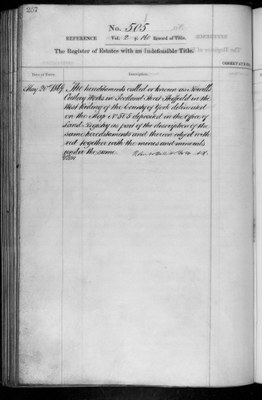 257
No. 505
REFERENCE Vol. 2 p. 160 Record of Title.
The Register of Estates with an Indefeasible Title.
Date of Entry. Description.
May 20th 1869 The hereditaments called or known as
Cutlery Works in Scotland Street Sheffield in the
West Riding of the County of York delineated
on the Map No. 505 deposited in the Office of
Land Registry as part of the description of the
same hereditaments and therein edged with
red Together with the mines and minerals
under the same.